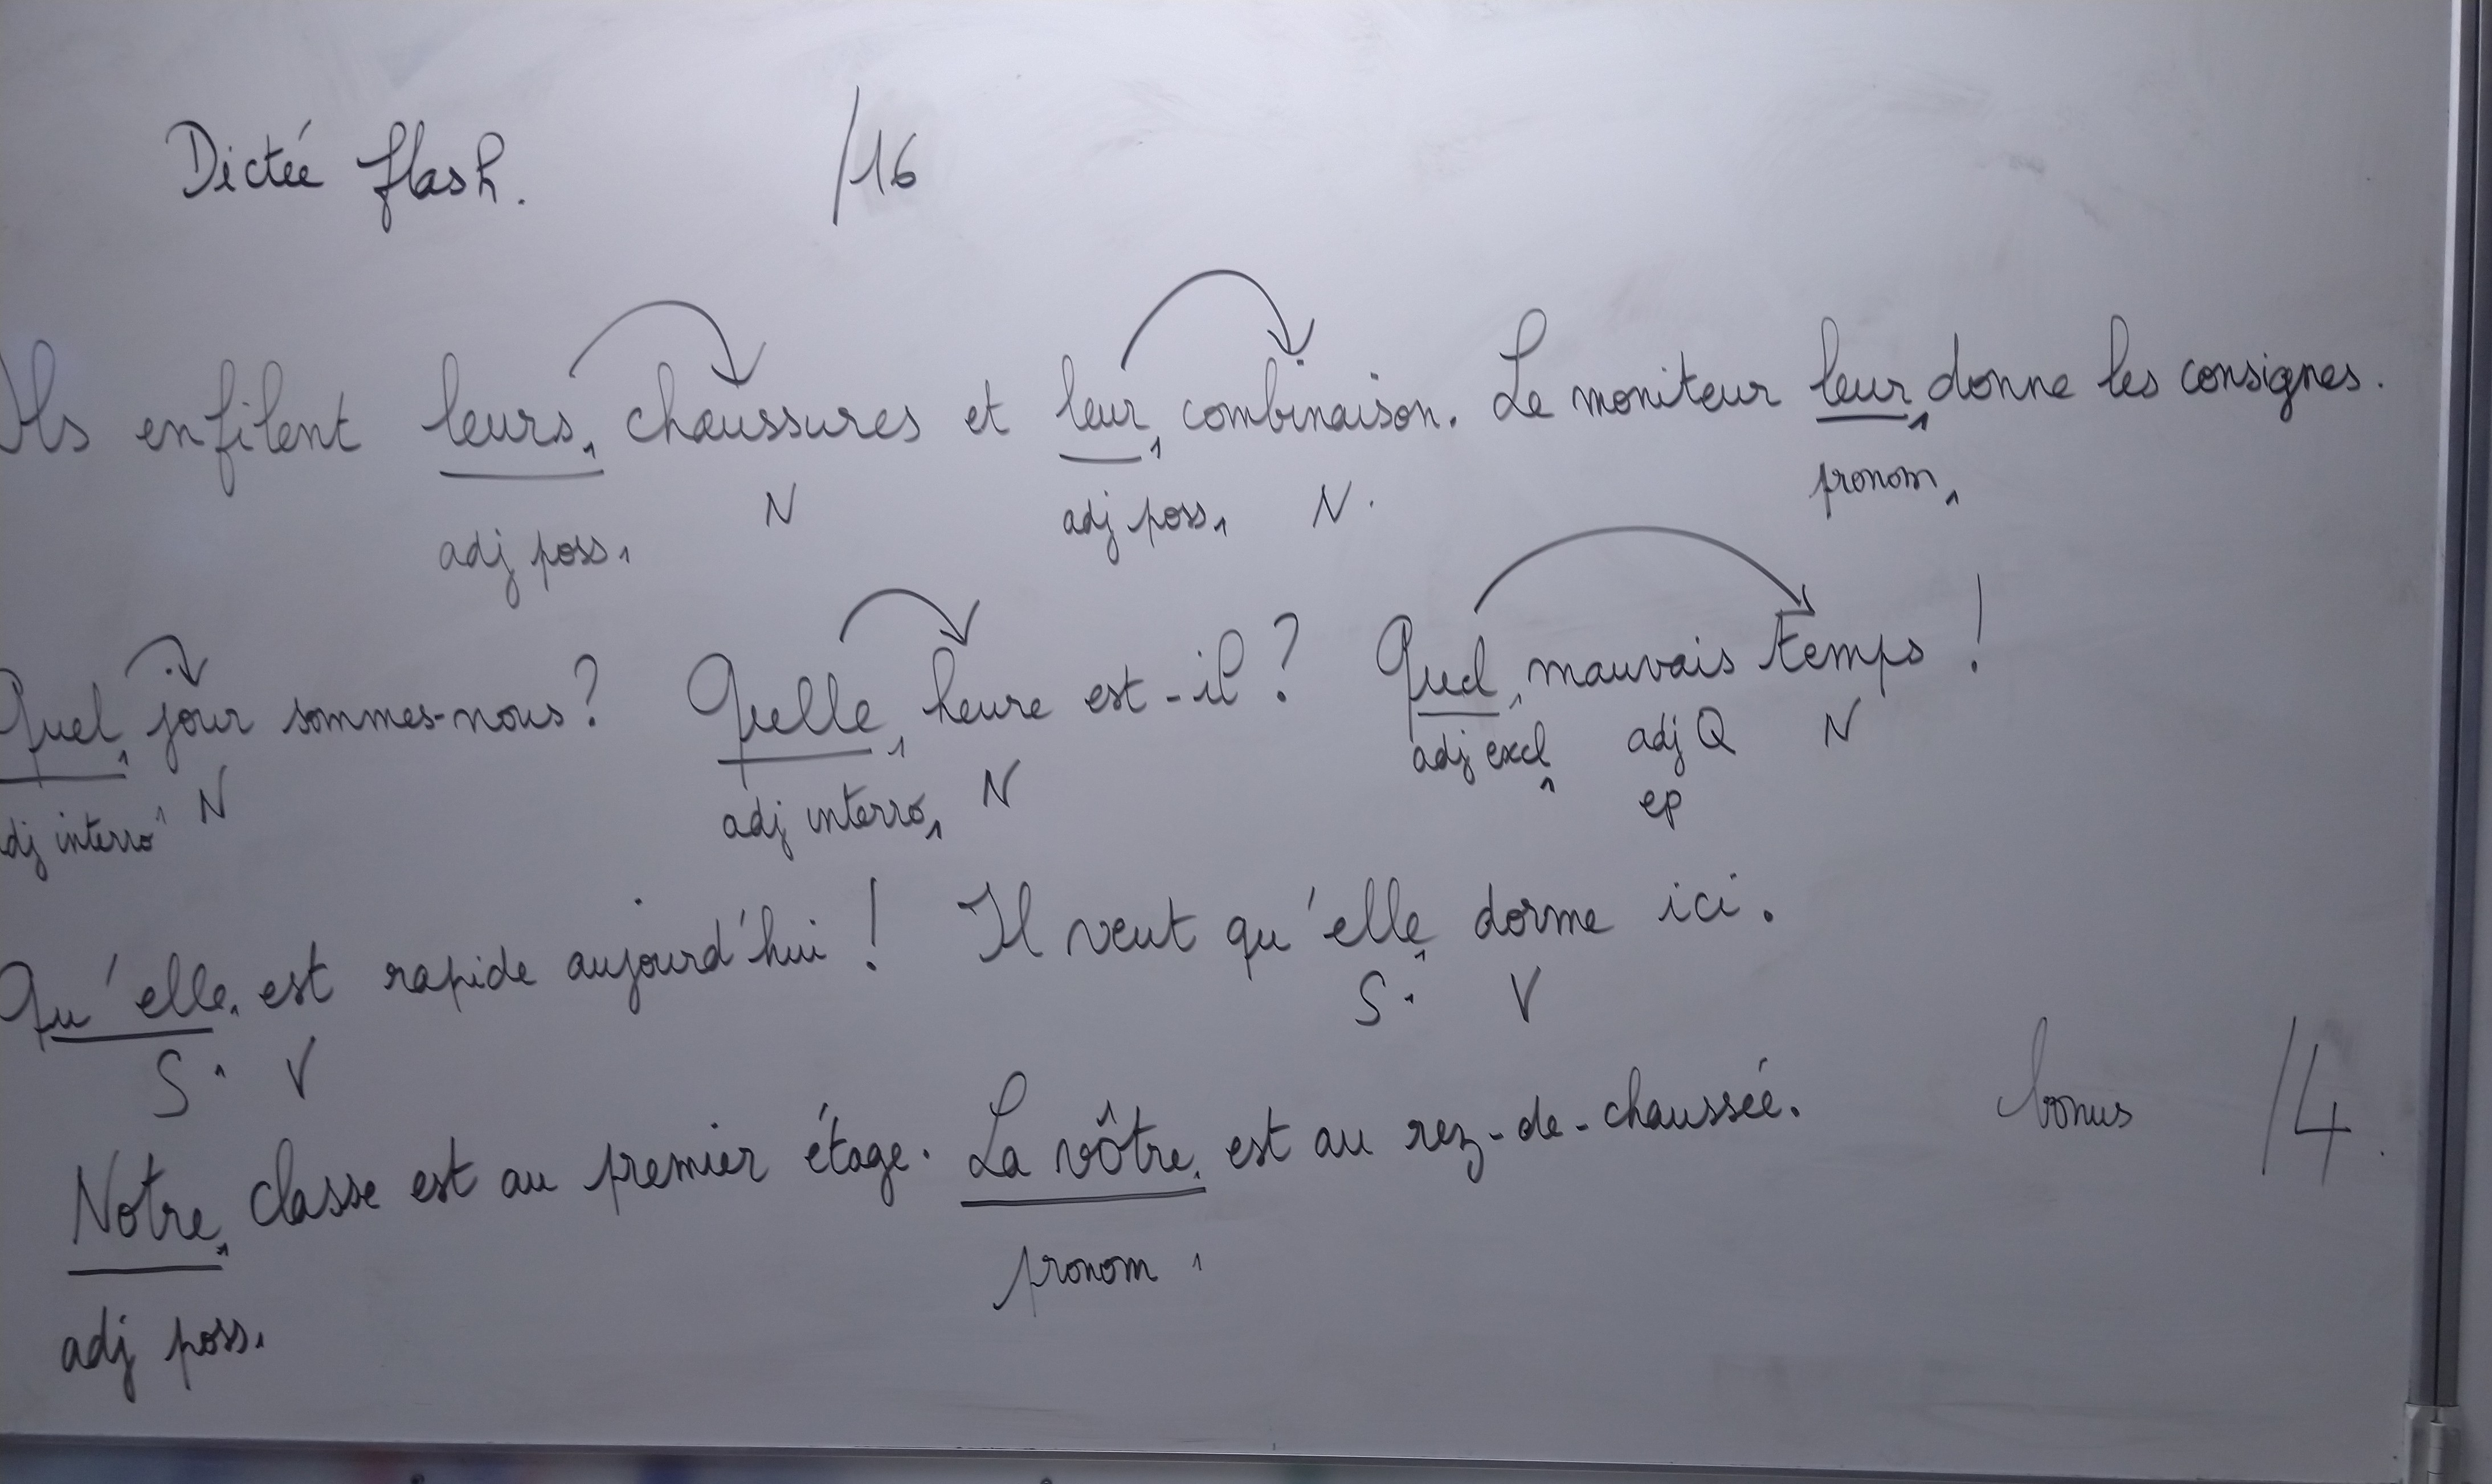 Dictée flash. /16
Ils enfilent leurs 1 chaussures et leur 1 combinaison. Le moniteur leur 1 donne les consignes.
adj poss. 1 N adj poss. 1 N. pronom 1
Quel 1 jour sommes-nous ? Quelle 1 heure est-il ? Quel 1 mauvais temps !
adj interro 1 N adj interro 1 N adj excl 1 adj Q N
ep
Qu'elle 1 est rapide aujourd'hui ! Il veut qu'elle 1 dorme ici.
S 1 V S 1 V
Notre 1 classe est au premier étage. La vôtre 1 est au rez-de-chaussée. bonus /4.
adj poss. 1 pronom 1